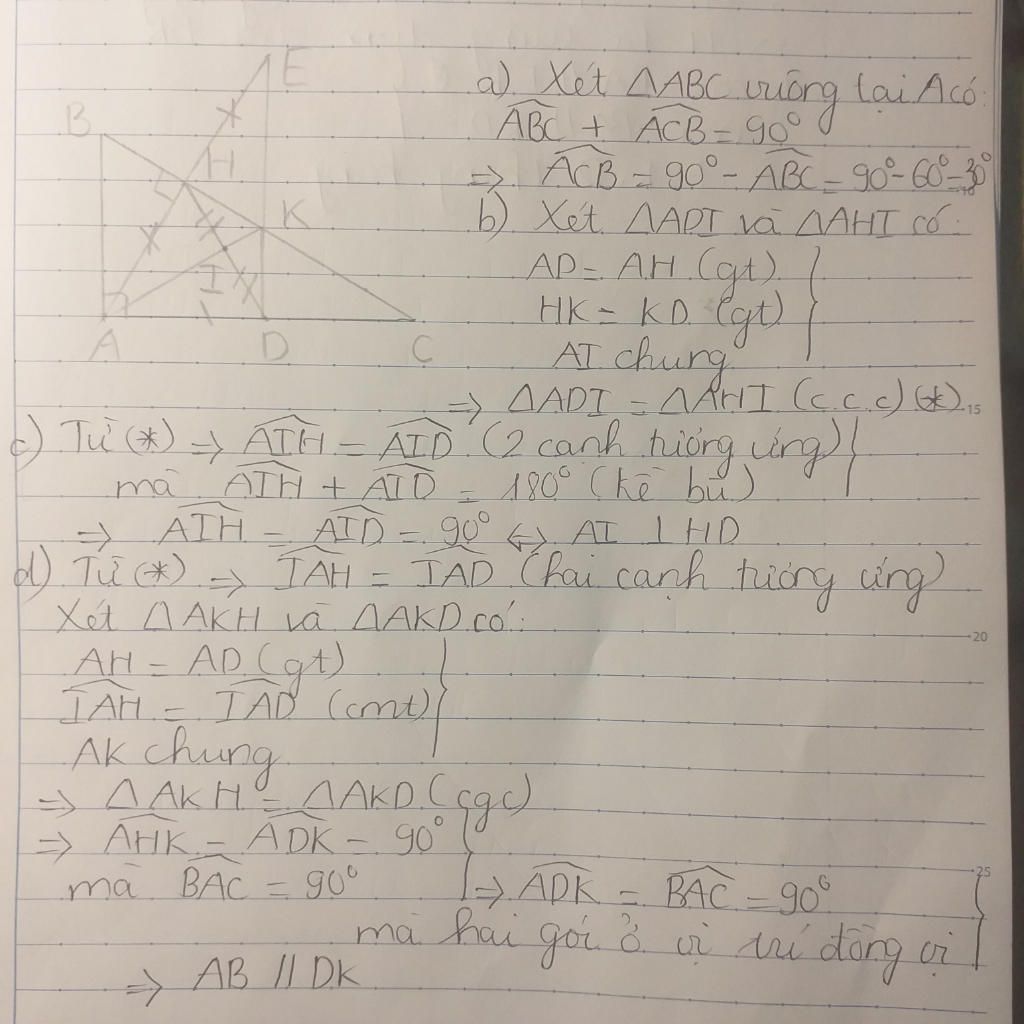 E
B
H
K
I
A
D
C
a) Xét △ABC vuông tại A có:
\widehat{ABC} + \widehat{ACB} = 90°
⇒ \widehat{ACB} = 90° - \widehat{ABC} = 90° - 60° = 30°
b) Xét △ADI và △AHI có:
AD = AH (gt)
HK = KD (gt)
AI chung
⇒ △ADI = △AHI (c.c.c) (*)
15
c) Từ (*) ⇒ \widehat{AIH} = \widehat{AID} (2 cạnh tương ứng)
mà \widehat{AIH} + \widehat{AID} = 180° (kề bù)
⇒ \widehat{AIH} = \widehat{AID} = 90° ⇔ AI ⊥ HD
d) Từ (*) ⇒ \widehat{IAH} = \widehat{IAD} (hai cạnh tương ứng)
Xét △AKH và △AKD có:
20
AH = AD (gt)
\widehat{IAH} = \widehat{IAD} (cmt)
AK chung
⇒ △AKH = △AKD (cgc)
⇒ \widehat{AHK} = \widehat{ADK} = 90°
25
mà \widehat{BAC} = 90° ⇒ \widehat{ADK} = \widehat{BAC} = 90°
mà hai gói ở vị trí đồng vị
⇒ AB // DK